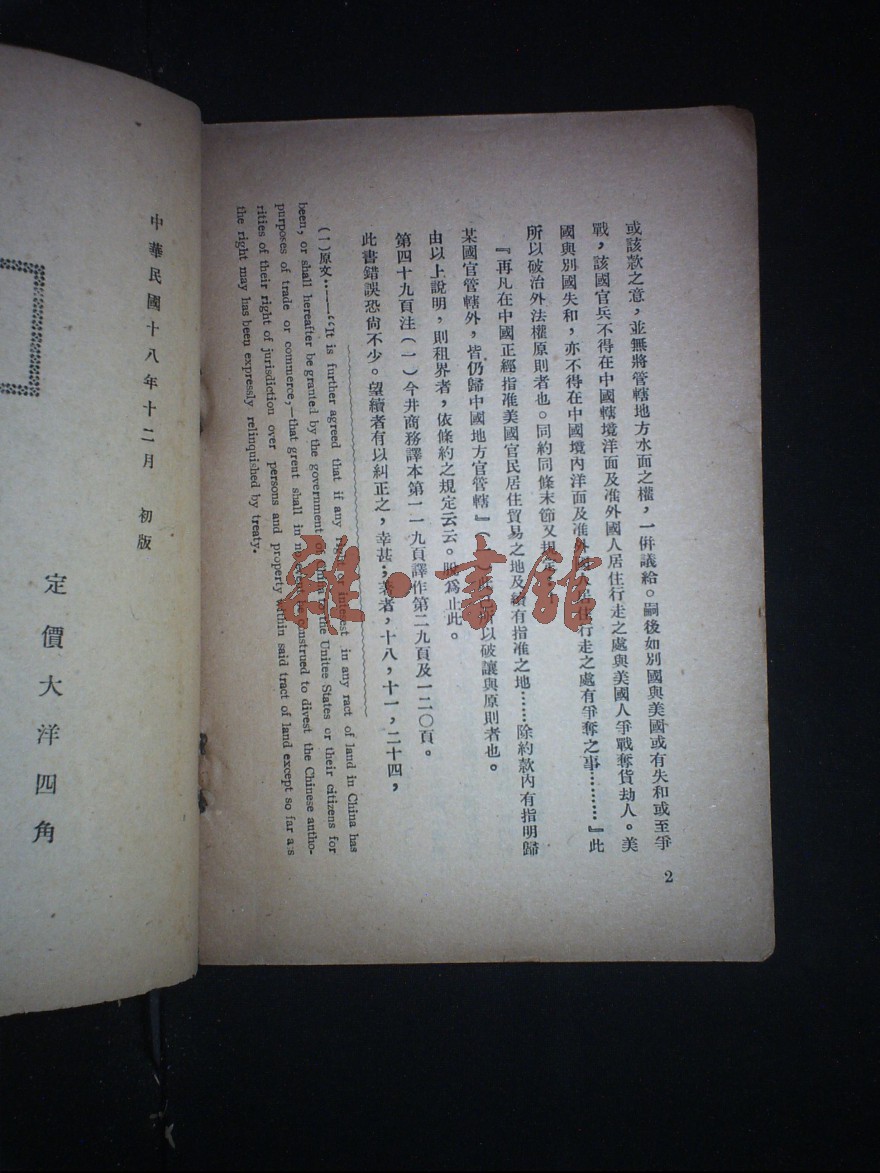 或該款之意，並無將管轄地方水面之權，一併議給。嗣後如別國與美國或有失和或至爭
戰，該國官兵不得在中國轄境洋面及准外國人居住行走之處與美國人爭戰奪貨劫人。美
國與別國失和，亦不得在中國境內洋面及准外國人居住行走之處有爭奪之事…………』此
所以破治外法權原則者也。同約同條末節又規定：
『再凡在中國正經指准美國官民居住貿易之地及續有指准之地……除約款內有指明歸
某國官管轄外，皆仍歸中國地方官管轄』(一)此所以破讓與原則者也。
由以上說明，則租界者，依條約之規定云云。脫爲止此。
第四十九頁注(一)今井商務譯本第一一九頁譯作第二九頁及一二〇頁。
此書錯誤恐尙不少。望續者有以糾正之，幸甚；著者，十八，十一，二十四，
(一)原文：——“It is further agreed that if any right or interest in any ract of land in China has
been, or shall hereafter be granted by the government of China to the Unitee States or their citizens for
purposes of trade or commerce,—that grent shall in no event be construed to divest the Chinese autho-
rities of their right of jurisdiction over persons and property within said tract of land except so far a:s
the right may has been expressly relinquished by treaty.
2
中華民國十八年十二月 初版
定價大洋四角
雜·書館